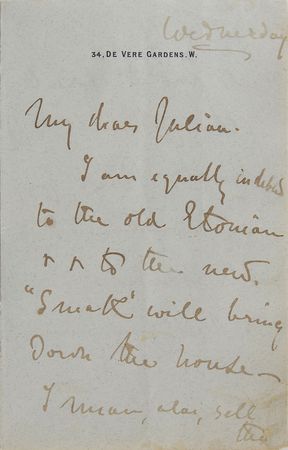 Wednesday
34, DE VERE GARDENS. W.
My dear Julian.
I am equally indebted
to the old Etonian
to the new.
will bring
down the house—
I mean, alas, sell
the